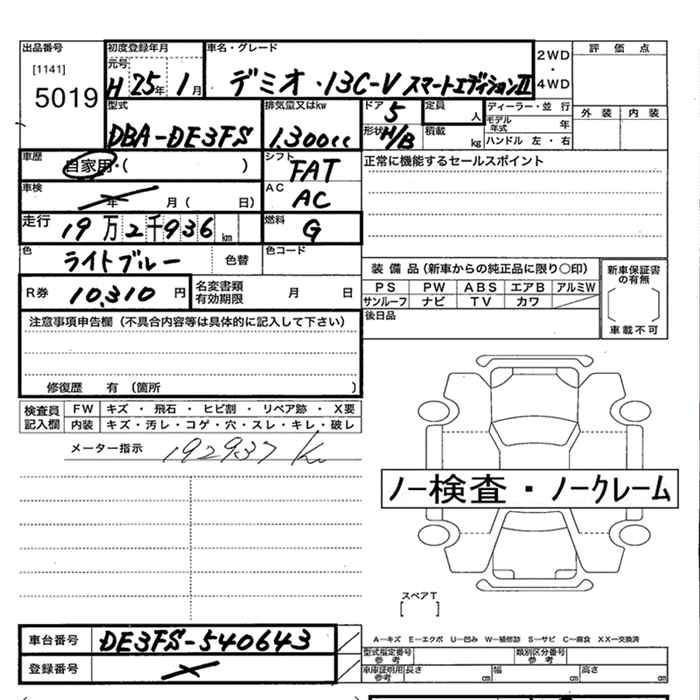 出品番号 初度登録年月 車名・グレード 評価点
[1141] 元号 2WD
5019 H 25年 1月 デミオ・13C-V スマートエディションⅡ ・
4WD
型式 排気量又はkw ドア 5 定員 人 ディーラー・並行 外装 内装
DBA-DE3FS 1.300cc 形状 H/B 積載 kg モデル年式 年
ハンドル 左・右
車歴 自家用・( ) シフト FAT 正常に機能するセールスポイント
車検 年 月( 日) AC AC
走行 19万2千936km 燃料 G
色 ライトブルー 色替 色コード
装備品(新車からの純正品に限り○印) 新車保証書の有無
R券 10,310円 名変書類有効期限 月 日 PS PW ABS エアB アルミW
サンルーフ ナビ TV カワ
注意事項申告欄(不具合内容等は具体的に記入して下さい) 後日品 車載不可
修復歴 有(箇所 )
検査員記入欄 FW キズ・飛石・ヒビ割・リペア跡・X要
内装 キズ・汚レ・コゲ・穴・スレ・キレ・破レ
メーター指示 192937 K
ノー検査・ノークレーム
スペアT
[ ]
車台番号 DE3FS-540643 A―キズ E―エクボ U―凹み W―補修跡 S―サビ C―腐食 XX―交換済
型式指定番号 参考 類別区分番号 参考
登録番号 車庫証明用 参考 長さ cm 幅 cm 高さ cm